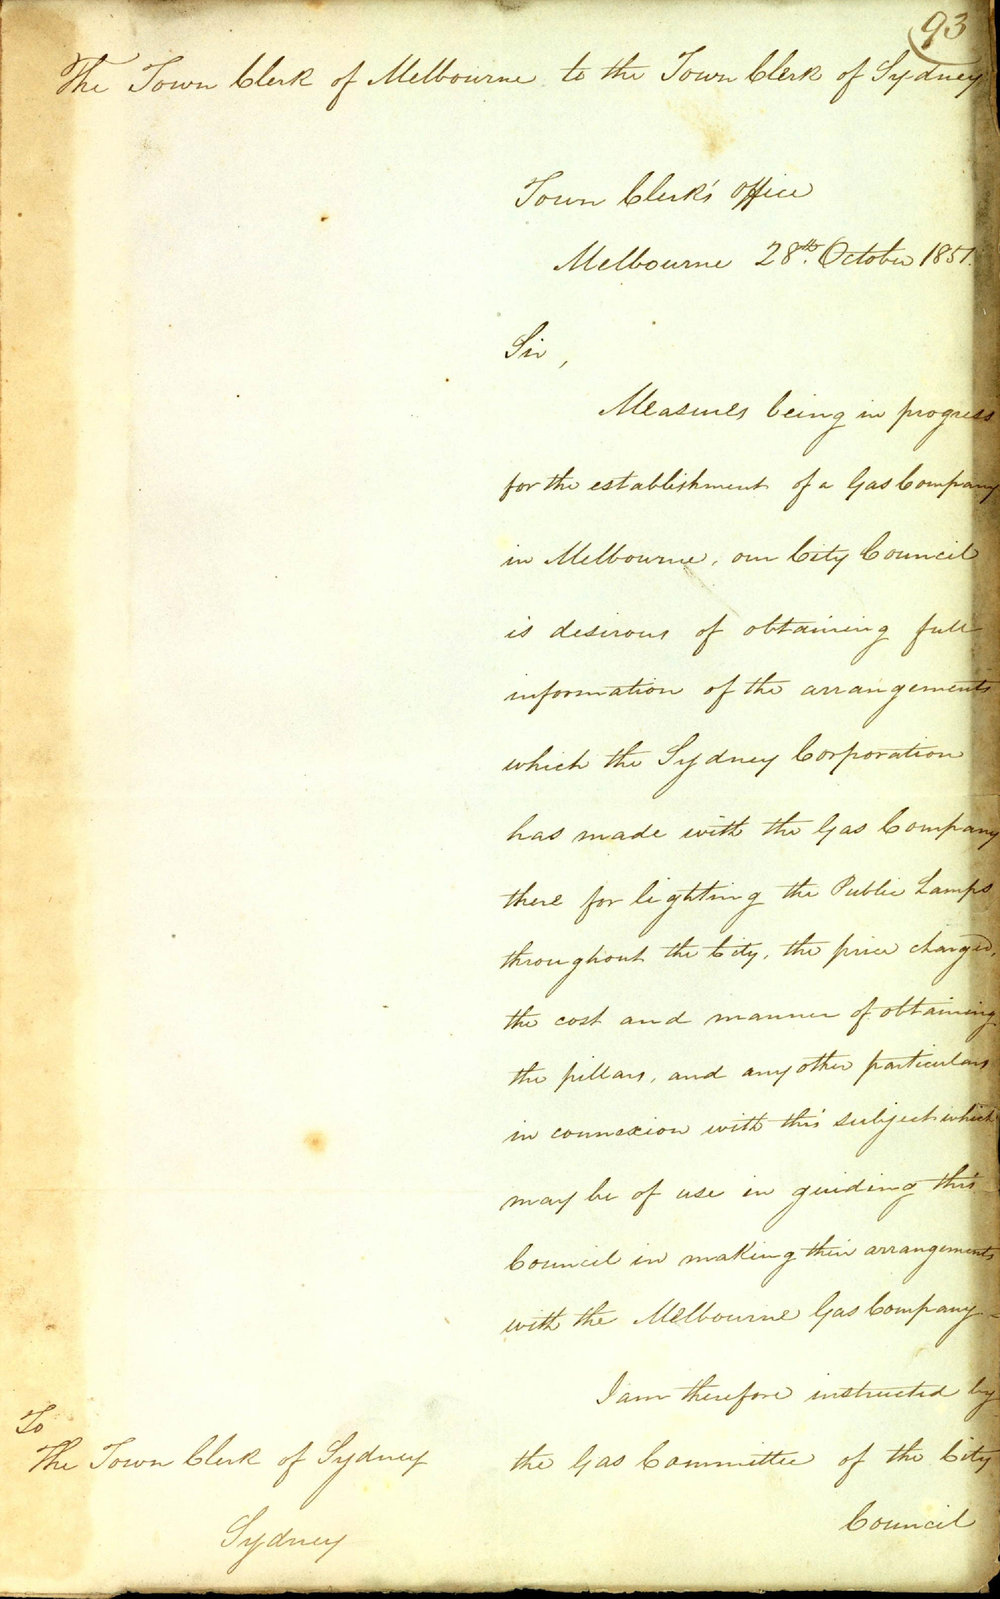 93
The Town Clerk of Melbourne to the Town Clerk of Sydney
Town Clerk's Office
Melbourne 28th. October 1851.
Sir,
Measures being in progress
for the establishment of a Gas Company
in Melbourne, our City Council
is desirous of obtaining full
information of the arrangements
which the Sydney Corporation
has made with the Gas Company
there for lighting the Public Lamps
throughout the City, the price charged,
the cost and manner of obtaining
the pillars, and any other particulars
in connexion with this subject which
may be of use in guiding this
Council in making their arrangements
with the Melbourne Gas Company-
I am therefore instructed by
the Gas Committee of the City
Council
To
The Town Clerk of Sydney
Sydney